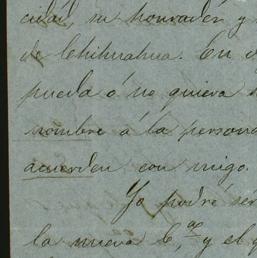 su honradez y
de Chihuahua. En
pueda ó no quiera
nombre á la persona
acuerden con migo.
Ya podré ser
la nueva C, y el